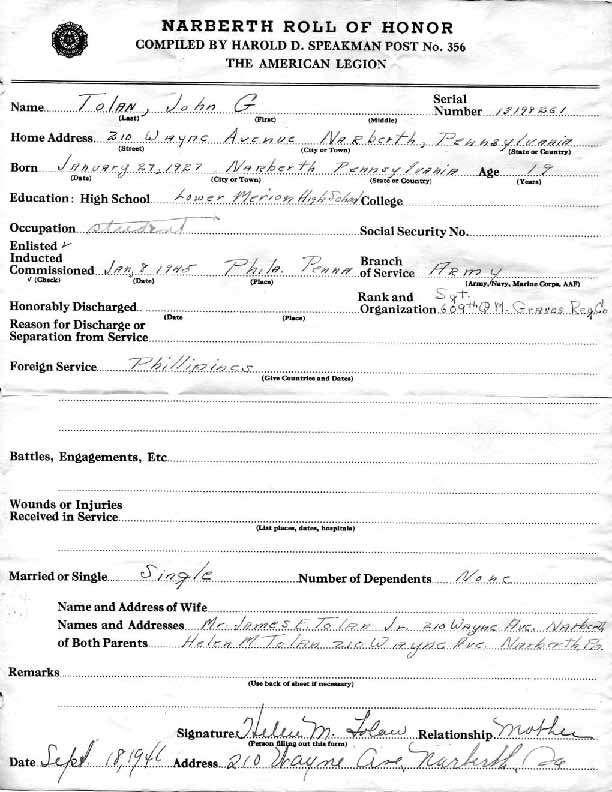 NARBERTH ROLL OF HONOR
COMPILED BY HAROLD D. SPEAKMAN POST No. 356
THE AMERICAN LEGION
Name Tolan, John G Serial Number 13198261
(Last) (First) (Middle)
Home Address 210 Wayne Avenue Narberth, Pennsylvania
(Street) (City or Town) (State or Country)
Born January 27, 1927 Narberth Pennsylvania Age 19
(Date) (City or Town) (State or Country) (Years)
Education: High School Lower Merion High School College
Occupation student Social Security No.
Enlisted √
Inducted
Commissioned Jan, 8 1945 Phila. Penna Branch of Service Army
√ (Check) (Date) (Place) (Army, Navy, Marine Corps, AAF)
Honorably Discharged Rank and Organization Sgt. 609th Q.M. Graves Reg. Co
(Date (Place)
Reason for Discharge or
Separation from Service
Foreign Service Phillipines
(Give Countries and Dates)
Battles, Engagements, Etc
Wounds or Injuries
Received in Service
(List places, dates, hospitals)
Married or Single Single Number of Dependents None
Name and Address of Wife
Names and Addresses Mr. James E. Tolan Jr. 210 Wayne Ave. Narberth
of Both Parents Helen M Tolan 210 Wayne Ave. Narberth Pa
Remarks
(Use back of sheet if necessary)
Signature: Helen M. Tolan Relationship Mother
(Person filling out this form)
Date Sept. 18, 1946 Address 210 Wayne Ave, Narberth, Pa